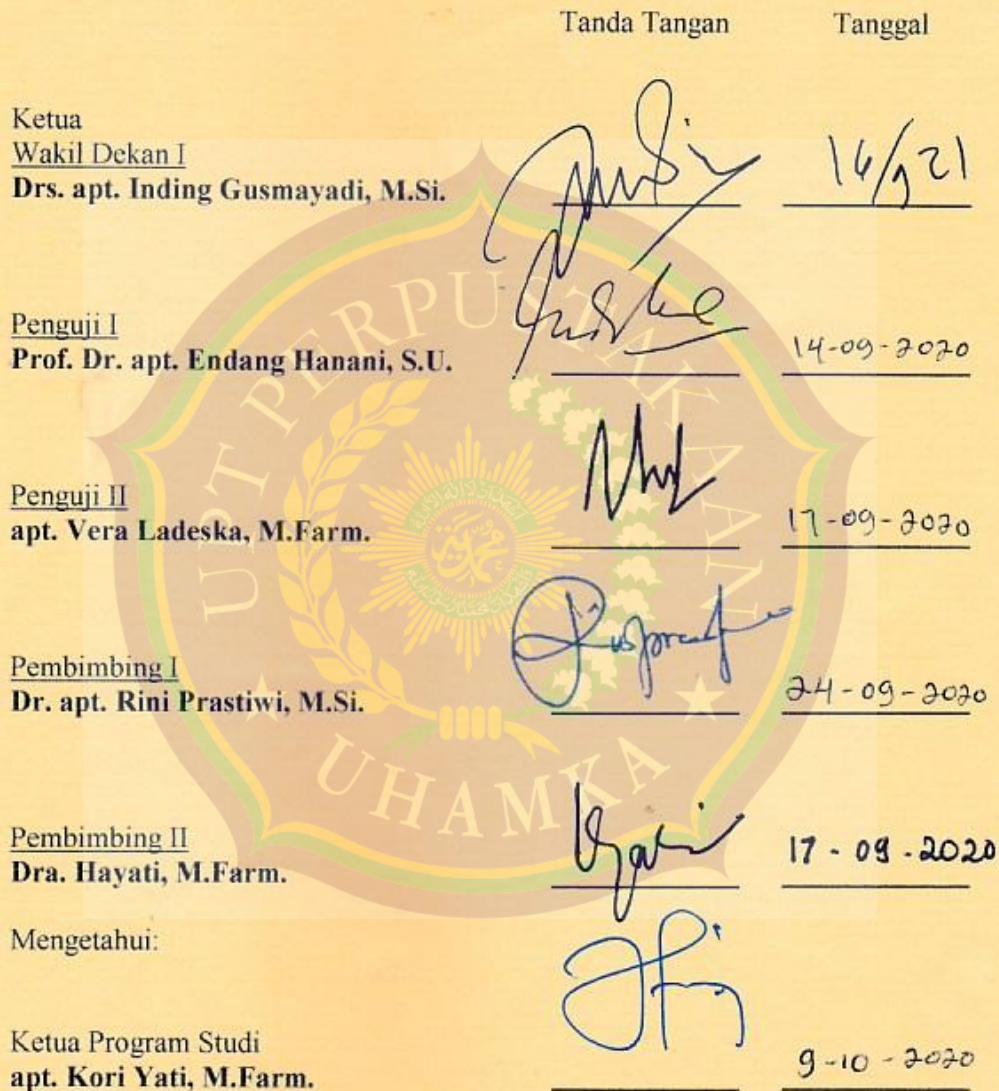 Tanda Tangan Tanggal
Ketua
Wakil Dekan I
Drs. apt. Inding Gusmayadi, M.Si.
Penguji I
Prof. Dr. apt. Endang Hanani, S.U. 14-09-2020
Penguji II
apt. Vera Ladeska, M.Farm. 17-09-2020
Pembimbing I
Dr. apt. Rini Prastiwi, M.Si. 24-09-2020
Pembimbing II
Dra. Hayati, M.Farm. 17-09-2020
Mengetahui:
Ketua Program Studi
apt. Kori Yati, M.Farm. 9-10-2020
UPT PERPUSTAKAAN
UHAMKA